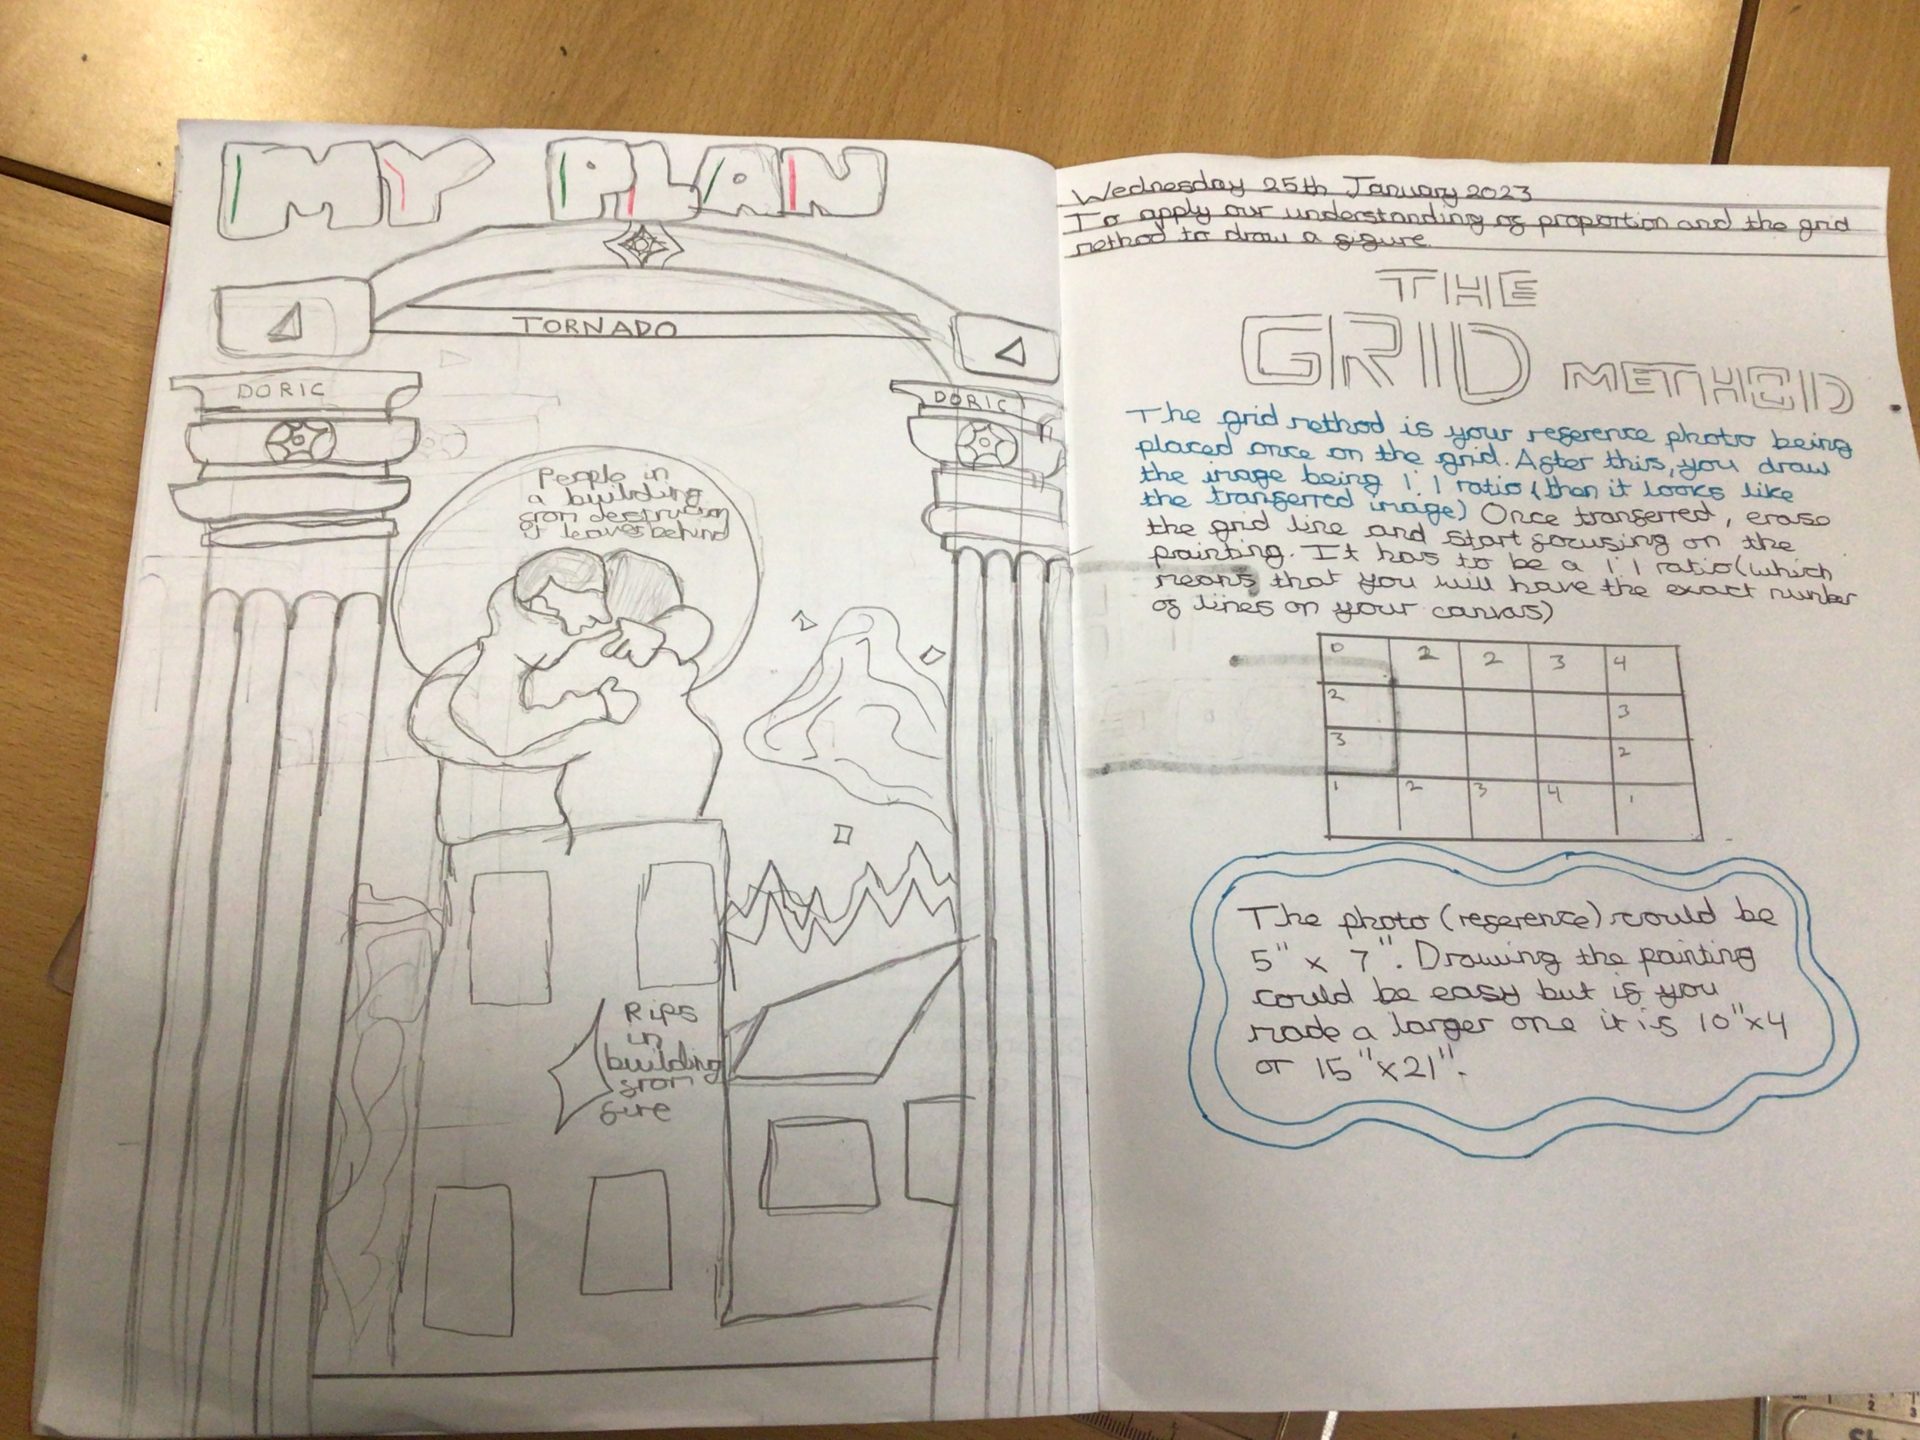 MY PLAN
TORNADO
DORIC
DORIC
People in
a building
from destruction
it leaves behind
Rips
in
building
from
fire
Wednesday 25th January 2023
To apply our understanding of proportion and the grid
method to draw a figure
THE
GRID METHOD
The grid method is your reference photo being
placed once on the grid. After this, you draw
the image being 1:1 ratio (then it looks like
the transferred image) Once transferred, erase
the grid line and start focusing on the
painting. It has to be a 1:1 ratio (which
means that you will have the exact number
of lines on your canvas)
0 2 2 3 4
2 3
3 2
1 2 3 4 1
The photo (reference) could be
5" x 7". Drawing the painting
could be easy but if you
made a larger one it is 10"x4
or 15"x21".